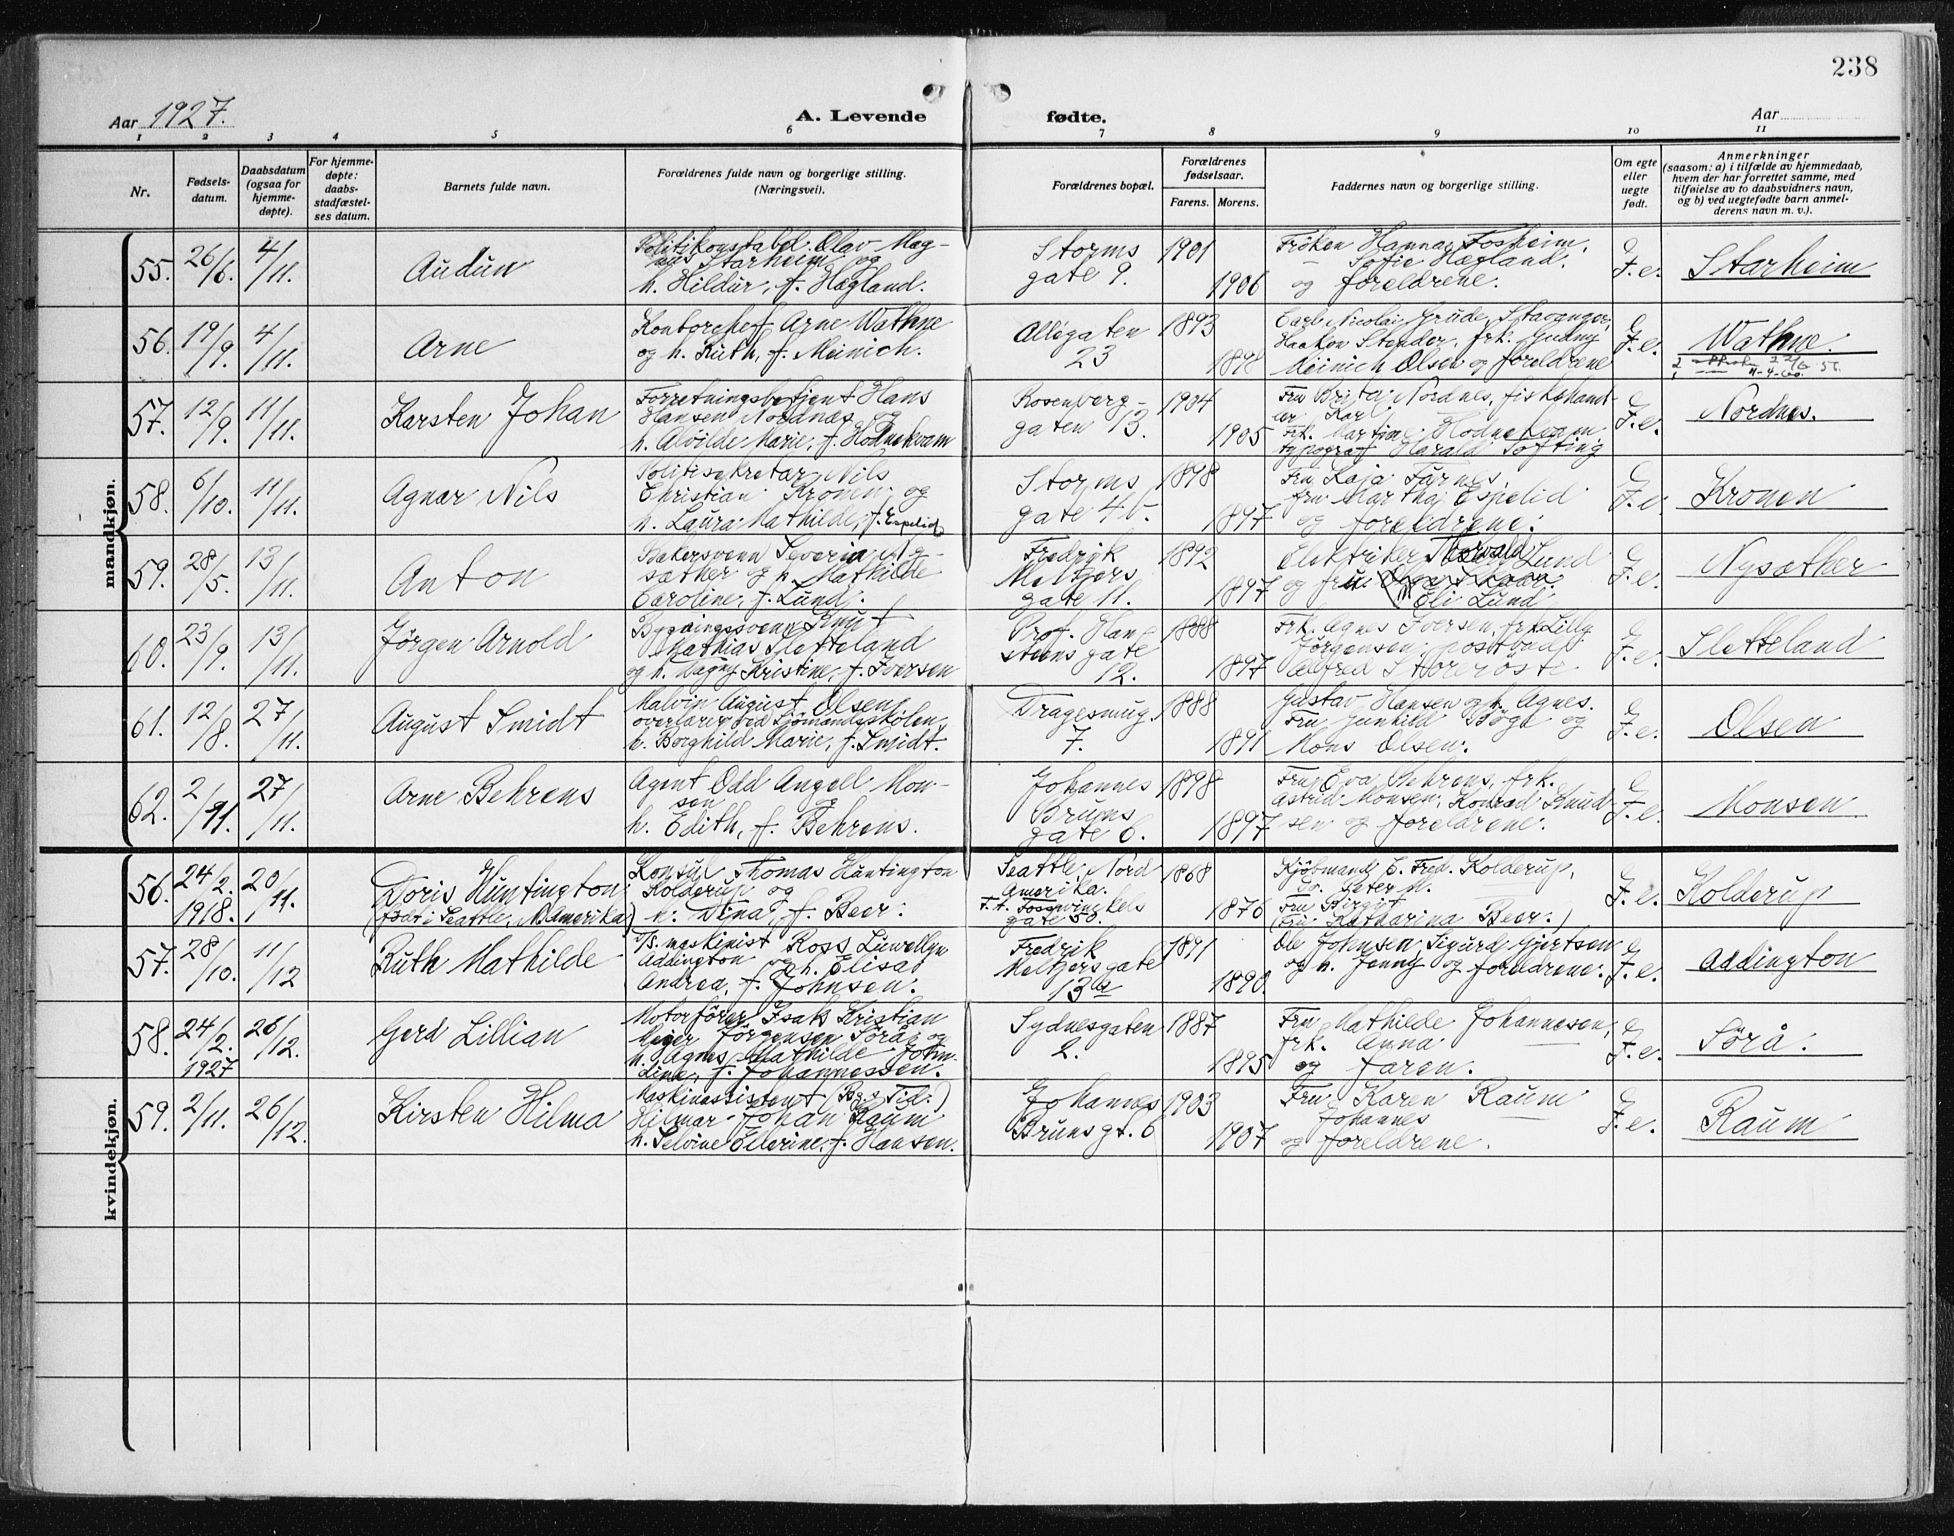 238
Aar 1927.
A. Levende fødte.
Aar
1 2 3 4 5 6 7 8 9 10 11
Nr.
Fødsels-
datum.
Daabsdatum
(ogsaa for
hjemme-
døpte).
For hjemme-
døpte:
daabs-
stadfæstel-
ses datum.
Barnets fulde navn.
Forældrenes fulde navn og borgerlige stilling.
(Næringsvei).
Forældrenes bopæl.
Forældrenes
fødselsaar.
Farens. Morens.
Faddernes navn og borgerlige stilling.
Om egte
eller
uegte
født.
Anmerkninger
(saasom: a) i tilfælde av hjemmedaab,
hvem der har forrettet samme, med
tilføielse av to daabsvidners navn,
og b) ved uegtefødte barn anmel-
derens navn m. v.).
mandkjøn.
55. 26/6. 4/11. Audun
Politikonstabel Olav Mag-
nus Starheim og
h. Hildur, f. Hægland.
Storms
gate 9.
1901
1906
Frøken Hanna Fosheim,
— Sofie Hægland.
og foreldrene.
E
F. e.
Starheim
56. 19/9. 4/11. Arne
Kontorchef Arne Wathne
og h. Ruth, f. Meinich.
Allégaten
23
1893
1898
Carl Nicolai Grude, Stavanger,
Haakon Stender, frk. Gudny
Meinich Olsen og foreldrene
E
F. e.
Wathne.
57. 12/9. 11/11. Karsten Johan
Forretningsbetjent Hans
Hansen Nordnæs og
h. Alvilde Marie, f. Hodnekvam
Rosenberg-
gaten 13.
1904
1905
Fru Brita Nordnes, fiskehand-
ler Karl
Frk. Martine Hodnekvam
typograf Harald Softing
E
F. e.
Nordnes.
58. 6/10. 11/11. Agnar Nils
Politisekretær Nils
Christian Kronen og
h. Laura Mathilde, f. Espelid
Storms
gate 4b.
1898
1897
Fru Kaja Farnes,
fru Martha Espelid
og foreldrene.
E
F. e.
Kronen
59. 28/5. 13/11. Anton
Bakersvenn Severin Ny-
sæther og h. Mathilde
Caroline, f. Lund.
Fredrik
Meltzers
gate 11.
1892
1897
Elektriker Thorvald Lund
og fru
Eli Lund
E
F. e.
Nysæther
60. 23/9. 13/11. Jørgen Arnold
Bygningssvenn Knut
Mathias Sletteland
og h. Dagny Kristine, f. Iversen
Prof. Han-
steens gate
12.
1888
1897
Frk. Agnes Iversen, frk Lilly
Jørgensen, postbud
Alfred Storerøste
E
F. e.
Sletteland
61. 12/8. 27/11. August Smidt
Malvin August Olsen,
overlærer ved Sjömandsskolen,
h. Borghild Marie, f. Smidt.
Dragesmug.
7.
1888
1891
Gustav Hansen og h. Agnes.
Fru Gunhild Böge og
Mons Olsen.
E
F. e.
Olsen
62. 2/11. 27/11. Arne Behrens
Agent Odd Angell Mon-
sen og
h. Edith, f. Behrens.
Johannes
Bruns
gate 6.
1898
1897
Fru Eva Behrens, frk.
Astrid Monsen, Konrad Knud-
sen og foreldrene.
E
F. e.
Monsen
kvindekjøn.
56. 24/2. 1918. 20/11. Doris Huntington
(født i Seattle, N. Amerika)
Konsul Thomas Huntington
Kolderup og
h. Dina, f. Beer.
Seattle, Nord
Amerika.
t. t. Fosswinckels
gate 50.
1868
1876
Kjøbmand C. Fred. Kolderup,
Do. Peter M.
Fru Birgit
(Fru Katharina Beer.)
E
F. e.
Kolderup
57. 28/10. 11/12 Ruth Mathilde
D/S. maskinist Ross Liewellyn
Addington og h. Elisa
Andrea, f. Johnsen.
Fredrik
Meltzers gate
13
1891
1890.
Ole Johnsen, Sigurd Gjertsen
og h. Jenny og foreldrene.
E
F. e.
Addington
58. 24/2. 1927 26/12. Gerd Lillian
Motorfører Isak Kristian
Meier Jørgensen Sörå og
h. Agnes Mathilde John-
Line, f. Johannessen.
Sydnesgaten
2.
1887
1895
Fru Mathilde Johannesen,
frk. Anna
og faren.
E
F. e.
Sörå.
59. 2/11. 26/12. Kirsten Hilma
Maskinassistent (Bg. Tid.)
Hilmar Johan Raum
h. Selvine Ellerine, f. Hansen.
Johannes
Bruns gt. 6
1903
1907
Fru Karen Raum
Johannes
og foreldrene.
E
F. e.
Raum